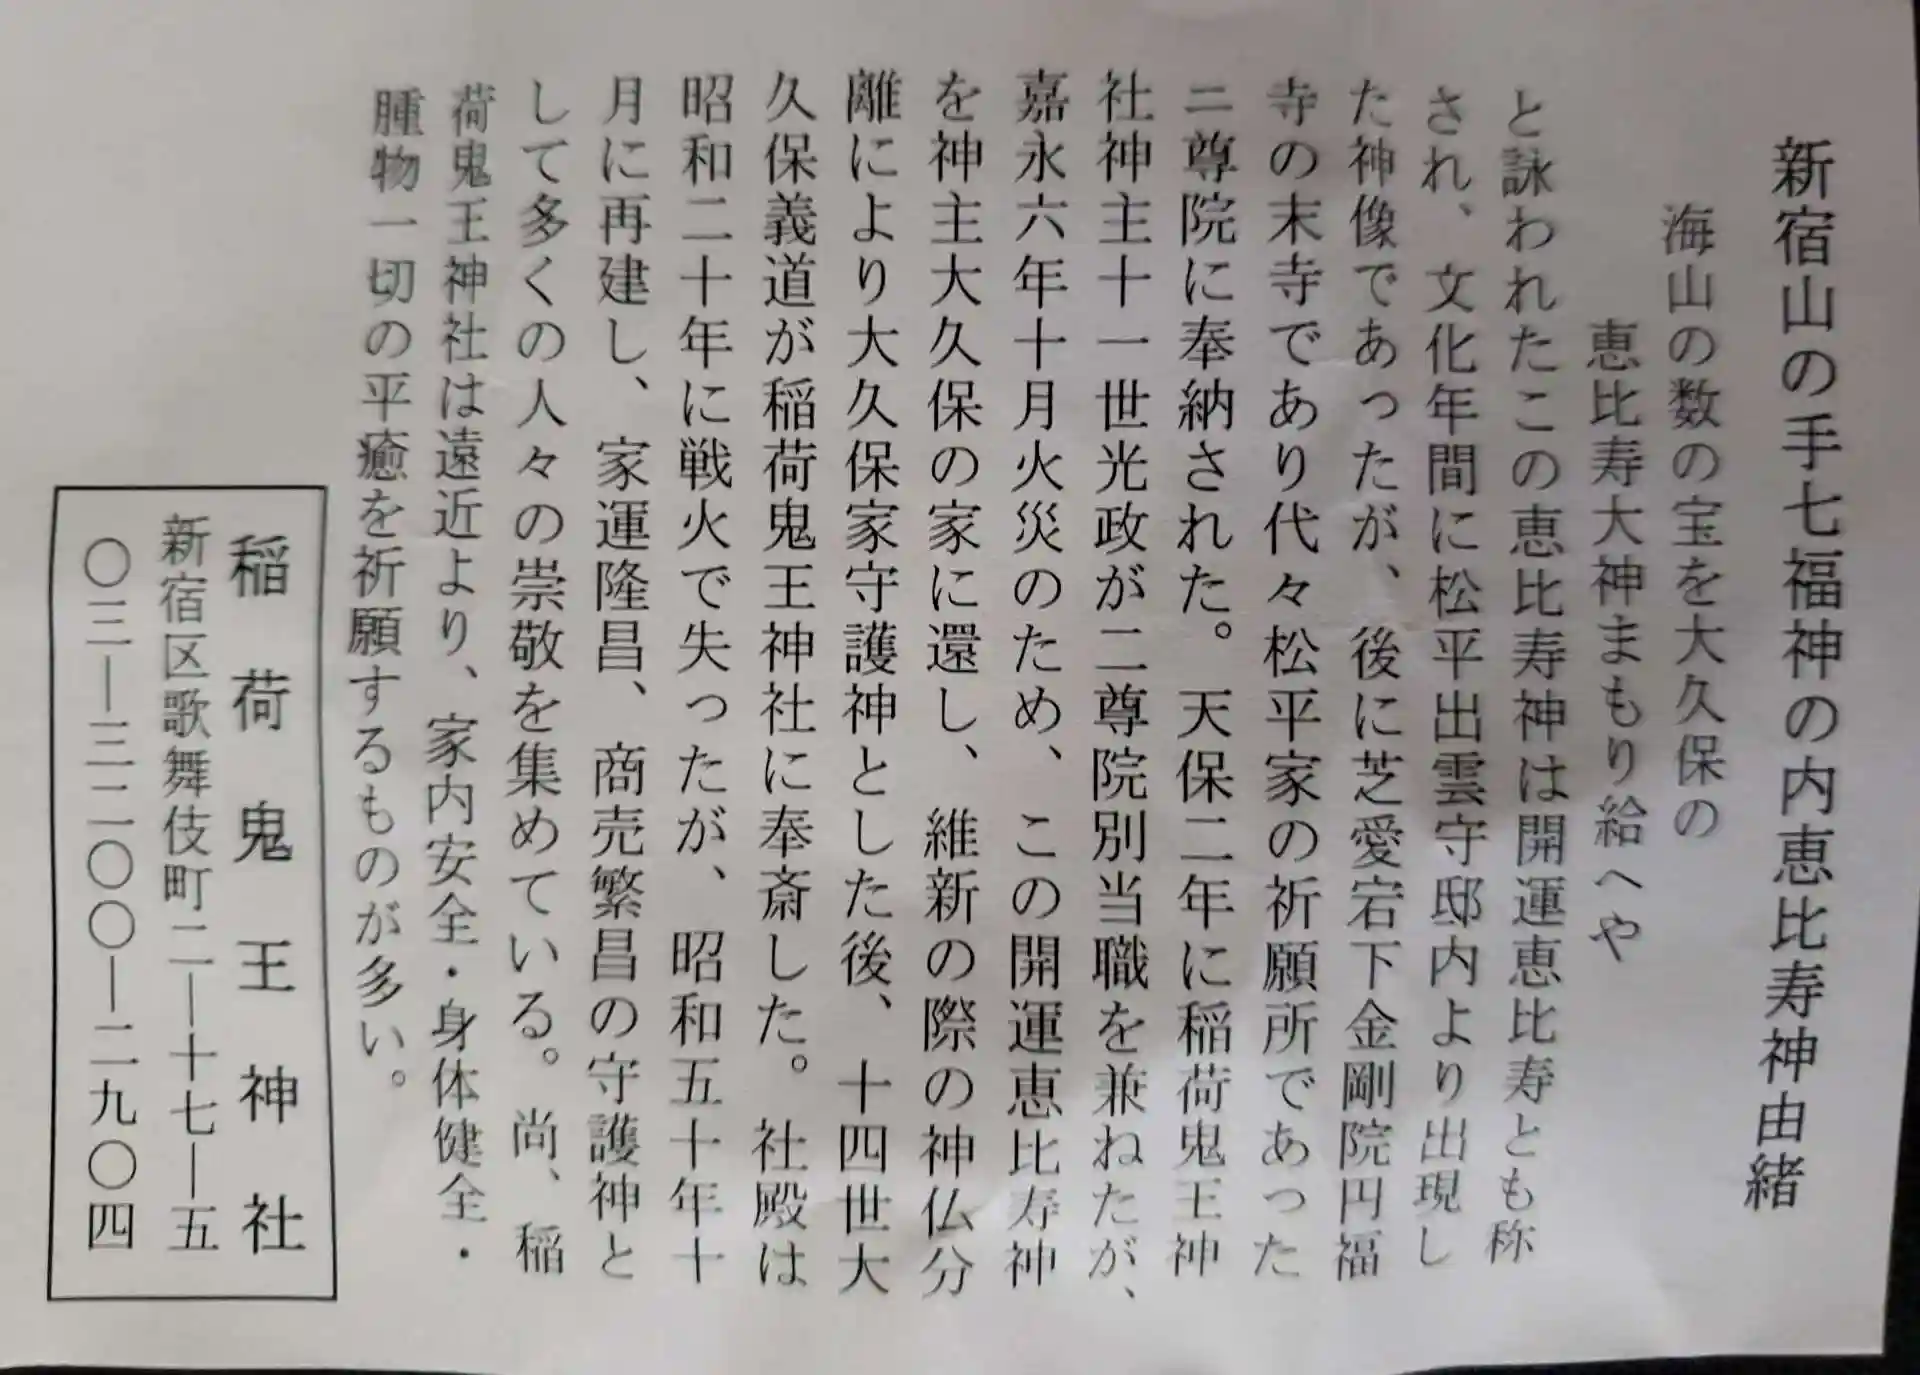 新宿山の手七福神の内恵比寿神由緒
海山の数の宝を大久保の
恵比寿大神まもり給へや
と詠われたこの恵比寿神は開運恵比寿とも称
され、文化年間に松平出雲守邸内より出現し
た神像であったが、後に芝愛宕下金剛院円福
寺の末寺であり代々松平家の祈願所であった
ニ尊院に奉納された。天保二年に稲荷鬼王神
社神主十一世光政が二尊院別当職を兼ねたが、
嘉永六年十月火災のため、この開運恵比寿神
を神主大久保の家に還し、維新の際の神仏分
離により大久保家守護神とした後、十四世大
久保義道が稲荷鬼王神社に奉斎した。社殿は
昭和二十年に戦火で失ったが、昭和五十年十
月に再建し、家運隆昌、商売繁昌の守護神と
して多くの人々の崇敬を集めている。尚、稲
荷鬼王神社は遠近より、家内安全・身体健全・
腫物一切の平癒を祈願するものが多い。
稲荷鬼王神社
新宿区歌舞伎町二―十七―五
〇三―三二〇〇―二九〇四